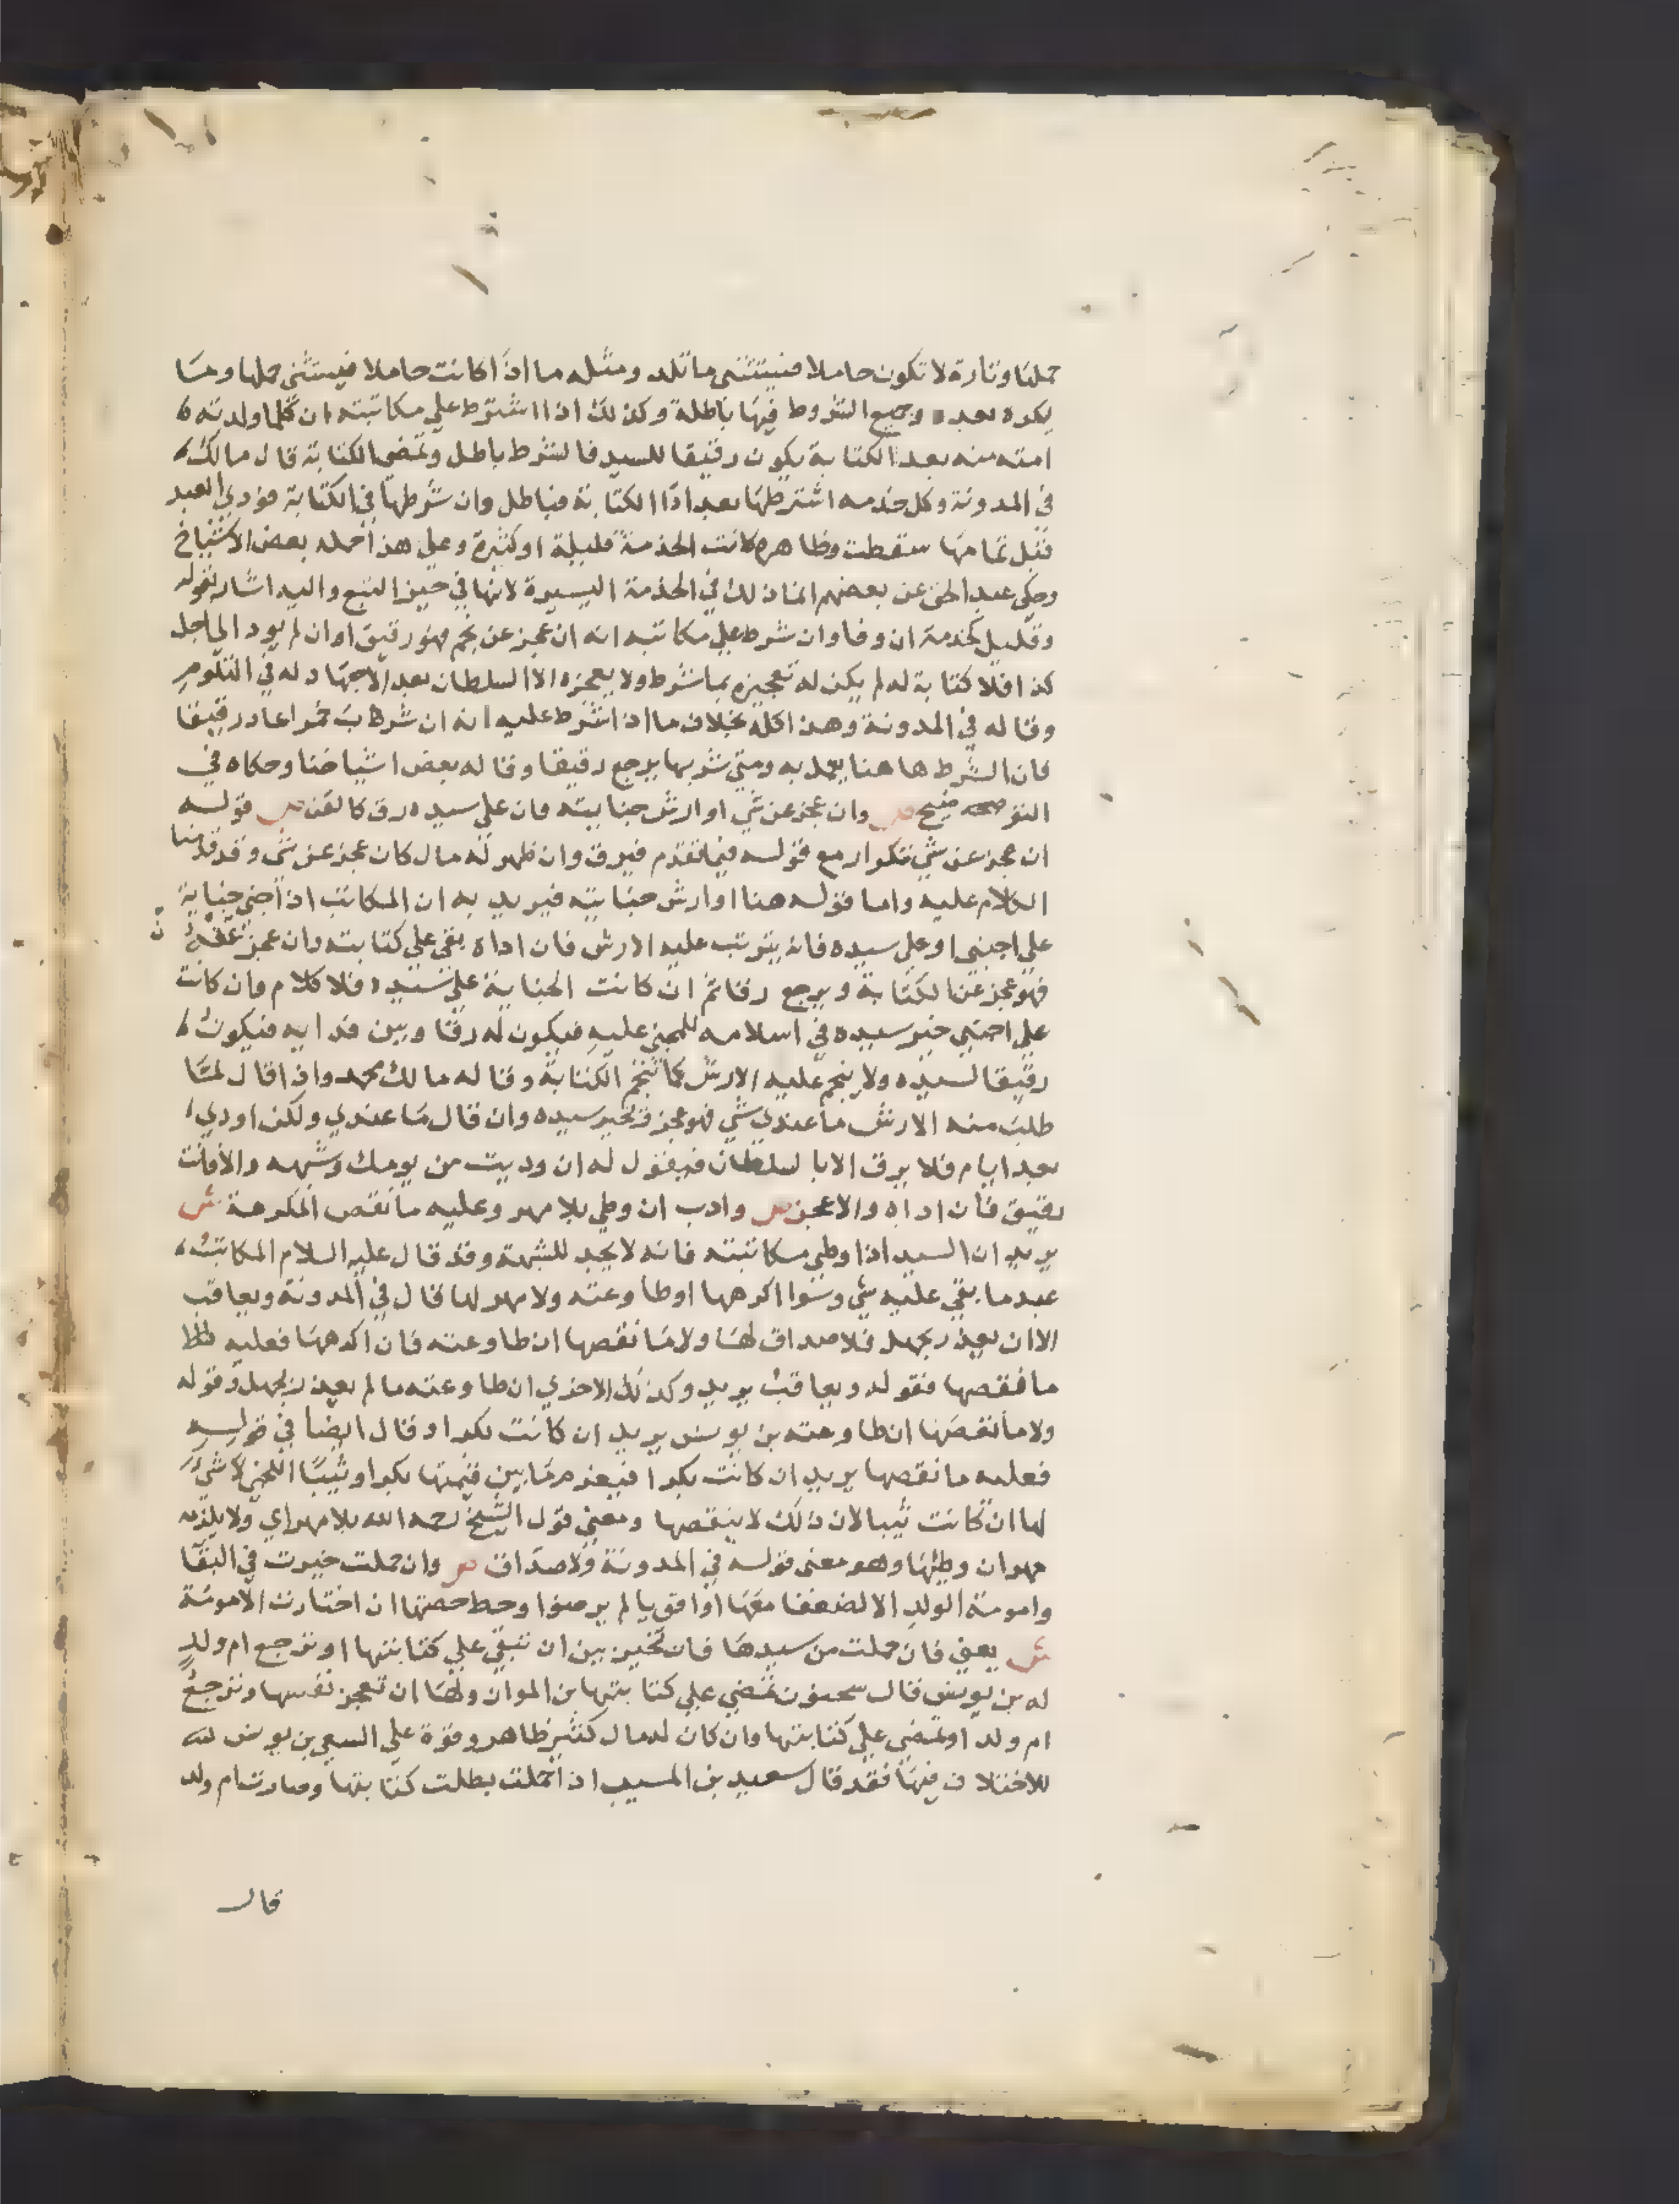 حملها وتارة لا تكون حاملا فيستثنى ما تلد ومثله ما اذا كانت حاملا فيستثنى حملها وما
يكون بعده وجميع الشروط فيها باطلة وكذلك اذا اشترط على مكاتبته ان كلما ولدته
امته منه بعد الكتابة يكون رقيقا للسيد فالشرط باطل وتمضي الكتابة قال مالك
في المدونة وكل خدمه اشترطها بعد ادا الكتابة فباطل وان شرطها في الكتابة فودي العبد
قبل تمامها سقطت وظاهره كانت الخدمة قليلة او كثيرة وعلى هذا حمله بعض الاشياخ
وحكى عبد الحق عن بعضهم انما ذلك في الخدمة اليسيرة لانها في حيز التبع واليه اشار بقوله
وقليل كخدمة ان وفا وان شرط على مكاتبه انه ان عجز عن نجم فهو رقيق او ان لم يود الى اجل
كذا فلا كتابة له لم يكن له تعجيزه بما شرط ولا يعجزه الا السلطان بعد الاجتهاد له في التلوم
وقاله في المدونة وهذا كله بخلاف ما اذا اشترط عليه انه ان شرب خمرا عاد رقيقا
فان الشرط هاهنا يعمل به ومتى شربها يرجع رقيقا وقاله بعض اشياخنا وحكاه في
التوضيح ص وان عجز عن شي او ارش جنايته وان على سيده رق كالقن ش قوله
ان عجز عن شي تكرار مع قوله فيما تقدم فيرق وان ظهر له مال كان عجز عن شي وقد قدمنا
الكلام عليه واما قوله هنا او ارش جنايته فيريد به ان المكاتب اذا جنى جناية
على اجنبي او على سيده فانه يترتب عليه الارش فان اداه بقي على كتابته وان عجز عنه
فهو عجز عن الكتابة ويرجع رقا ثم ان كانت الجناية على سيده فلا كلام وان كانت
على اجنبي خير سيده في اسلامه للمجني عليه فيكون له رقا وبين فدايه فيكون
رقيقا لسيده ولا ينجم عليه الارش كما تنجم الكتابة وقاله مالك محمد واذا قال لما
طلب منه الارش ما عندي شي فهو عجز فيخير سيده وان قال ما عندي ولكن اودي
بعد ايام فلا يرق الا بالسلطان فيقول له ان وديت من يومك وشبهه والا فانت
رقيق فان اداه والا عجز ص وادب ان وطي بلا مهر وعليه ما نقص المكرهة ش
يريد ان السيد اذا وطي مكاتبته فانه لا يحد للشبهة وقد قال عليه السلام المكاتب
عبد ما بقي عليه شي وسوا اكرهها او طاوعته ولا مهر لها قال في المدونة ويعاقب
الا ان يعذر بجهل فلا صداق لها ولا ما نقصها ان طاوعته فان اكرهها فعليه
ما نقصها فقوله ويعاقب يريد وكذلك الاخرى ان طاوعته ما لم يعذر بجهل وقوله
ولا ما نقصها ان طاوعته بن يونس يريد ان كانت بكرا وقال ايضا في قوله
فعليه ما نقصها يريد ان كانت بكرا فيغرم ما بين قيمتها بكرا وثيبا اللخمي لا شي
لها ان كانت ثيبا لان ذلك لا ينقصها ومعنى قول الشيخ رحمه الله بلا مهر اي ولا يلزمه
مهر ان وطئها وهو معنى قوله في المدونة ولا صداق ص وان حملت خيرت في البقا
وامومة الولد الا لضعفا معها او اقويا لم يرضوا وحط حصتها ان اختارت الامومة
ش يعني فان حملت من سيدها فان تخير بين ان تبقى على كتابتها او ترجع ام ولد
له بن يونس قال سحنون تمضي على كتابتها بن المواز ولها ان تعجز نفسها وترجع
ام ولد او تمضي على كتابتها وان كان لها مال كثير ظاهر وقوة على السعي بن يونس
للاختلاف فيها فقد قال سعيد بن المسيب اذا حملت بطلت كتابتها وصارت ام ولد
قال